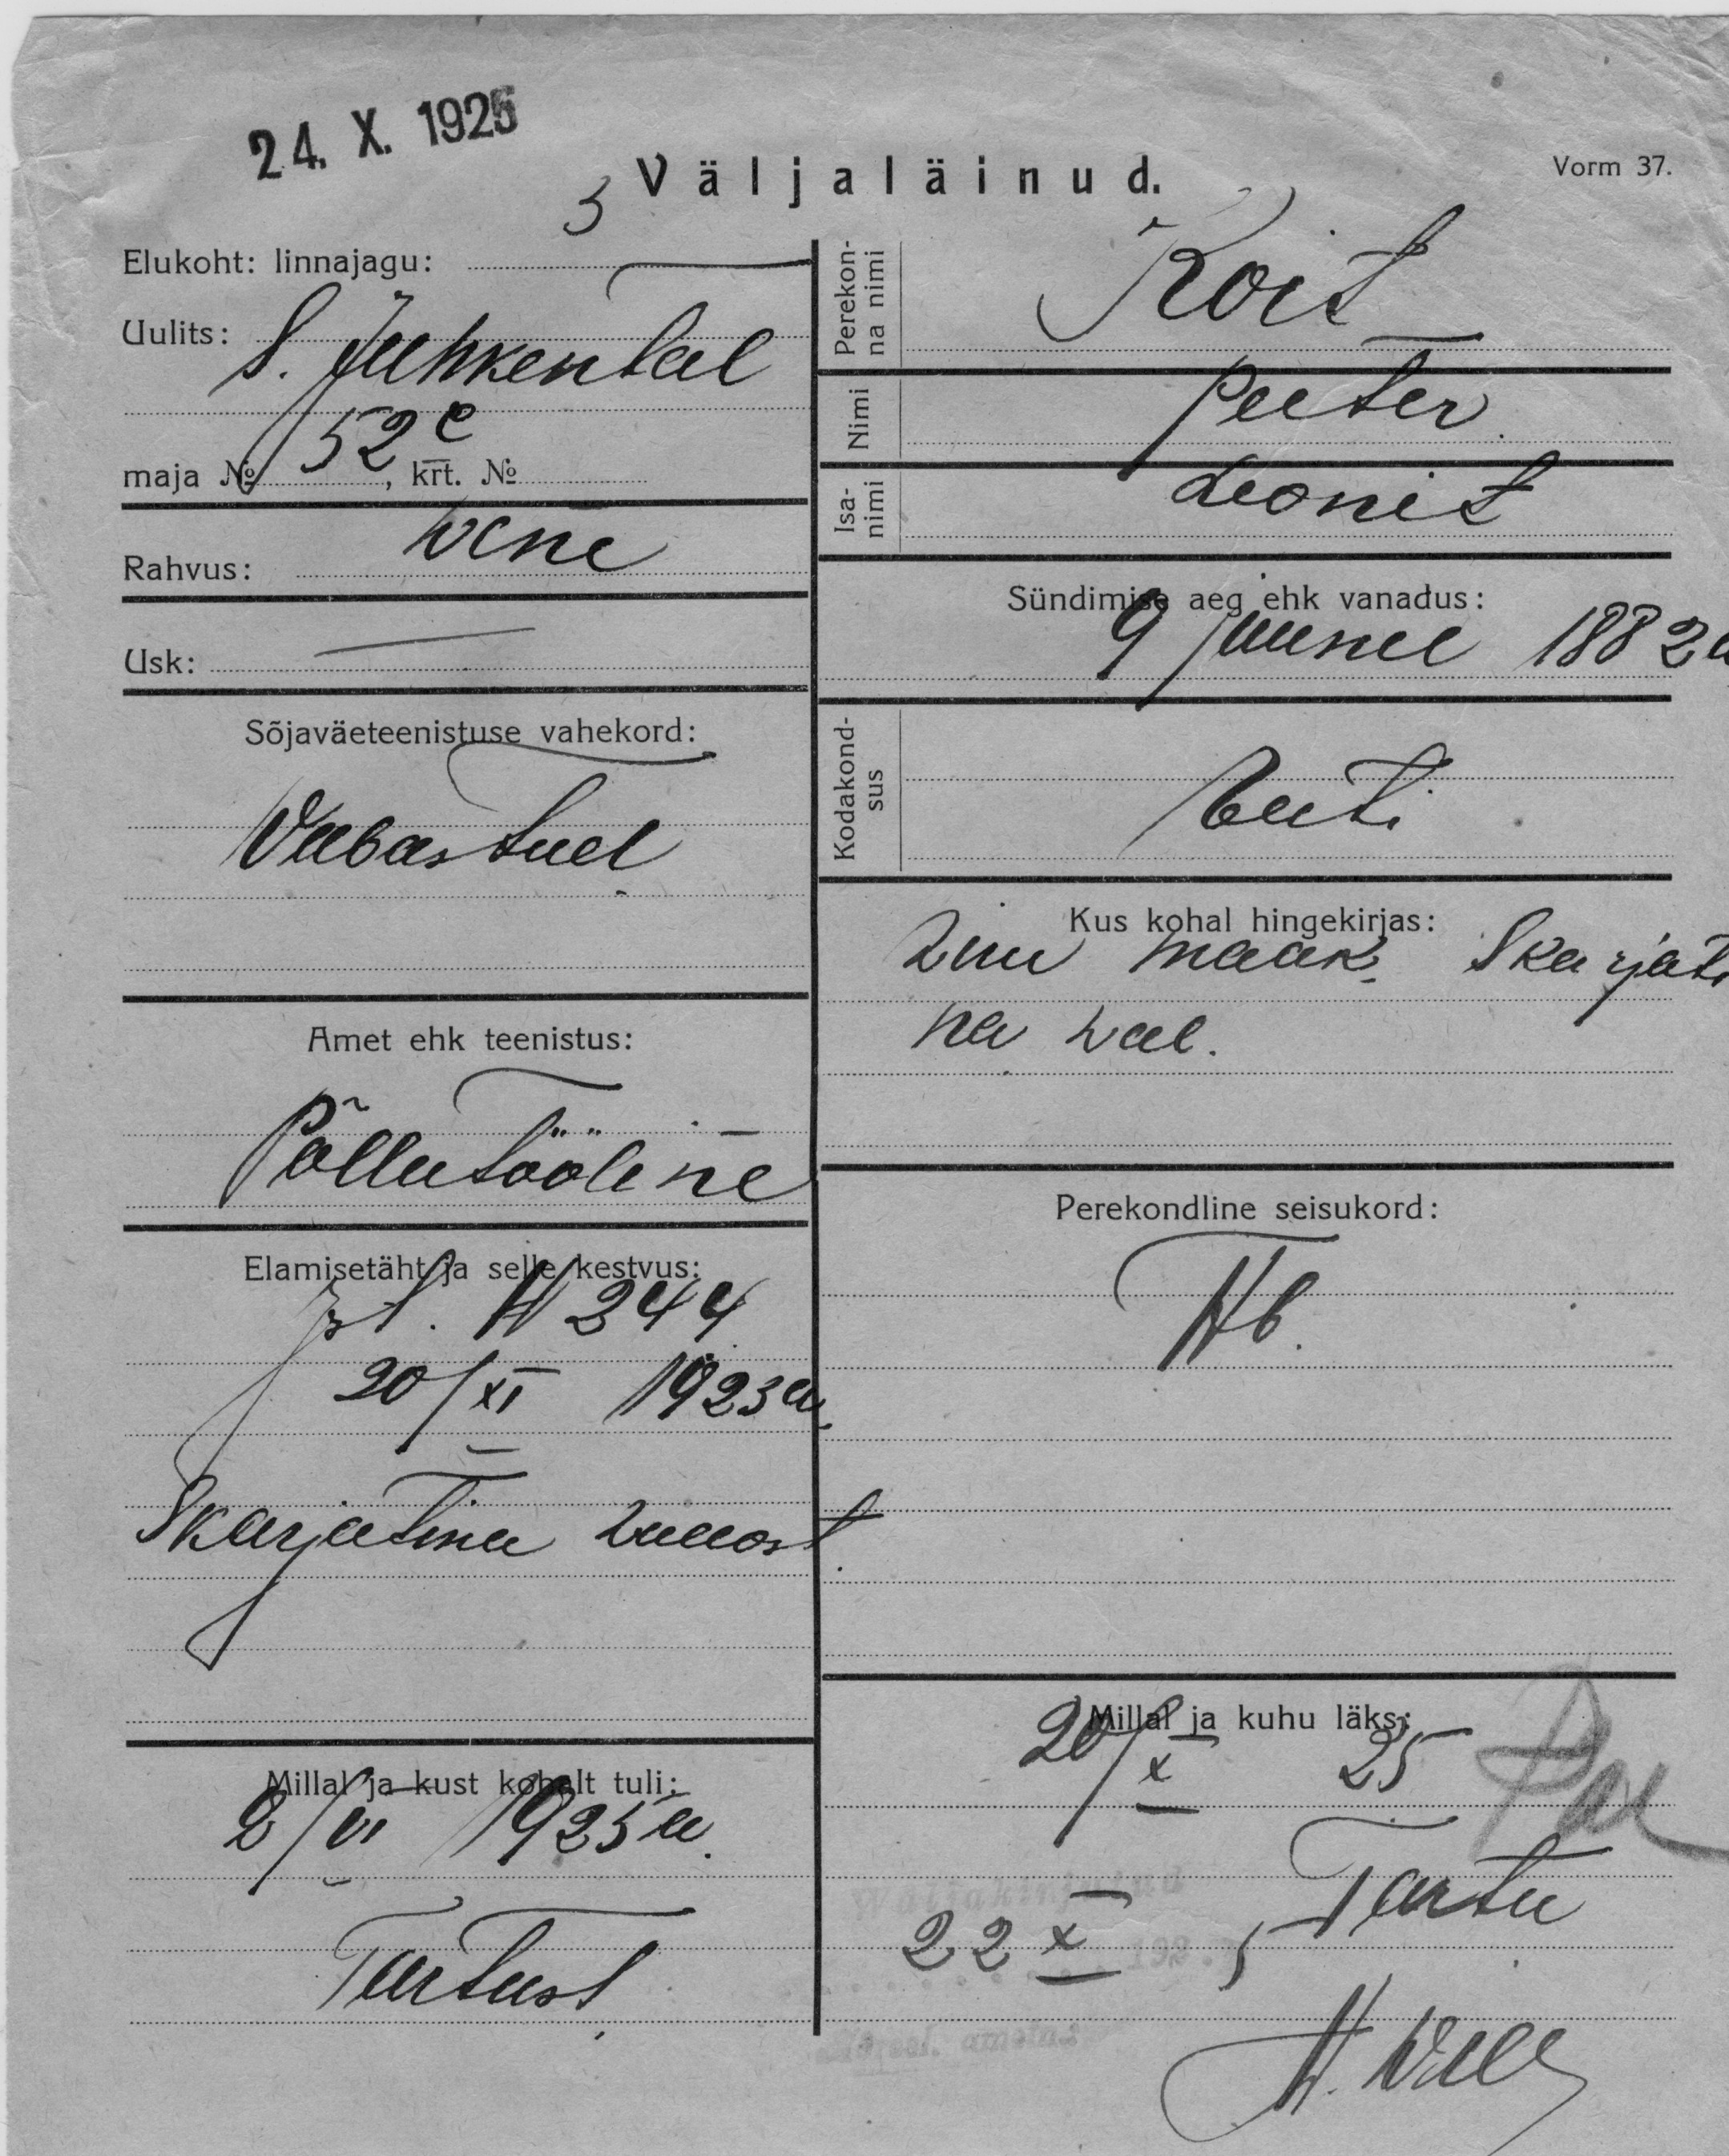 24. X. 1925
Väljaläinud.
Vorm 37.
Elukoht: linnajagu: 3
Uulits: S. Juhkental
maja № 52 c, krt. №
Rahvus: Wene
Usk: —
Sõjaväeteenistuse vahekord:
Vabastud
Amet ehk teenistus:
Põllutööline
Elamisetäht ja selle kestvus:
№ 244
20/XI 1923 a.
Skarjatina vallast
Millal ja kust kohalt tuli:
2/VI 1925 a.
Tartust
Perekonna nimi Koit
Nimi Peeter
Isanimi Leonit
Sündimise aeg ehk vanadus:
9 juunil 1882 a
Kodakondsus Eesti
Kus kohal hingekirjas:
maak. Skarjati
na val.
Perekondline seisukord:
Ab.
Millal ja kuhu läks:
20/X 25
Tartu
Väljakirjutud
22 X 192.5